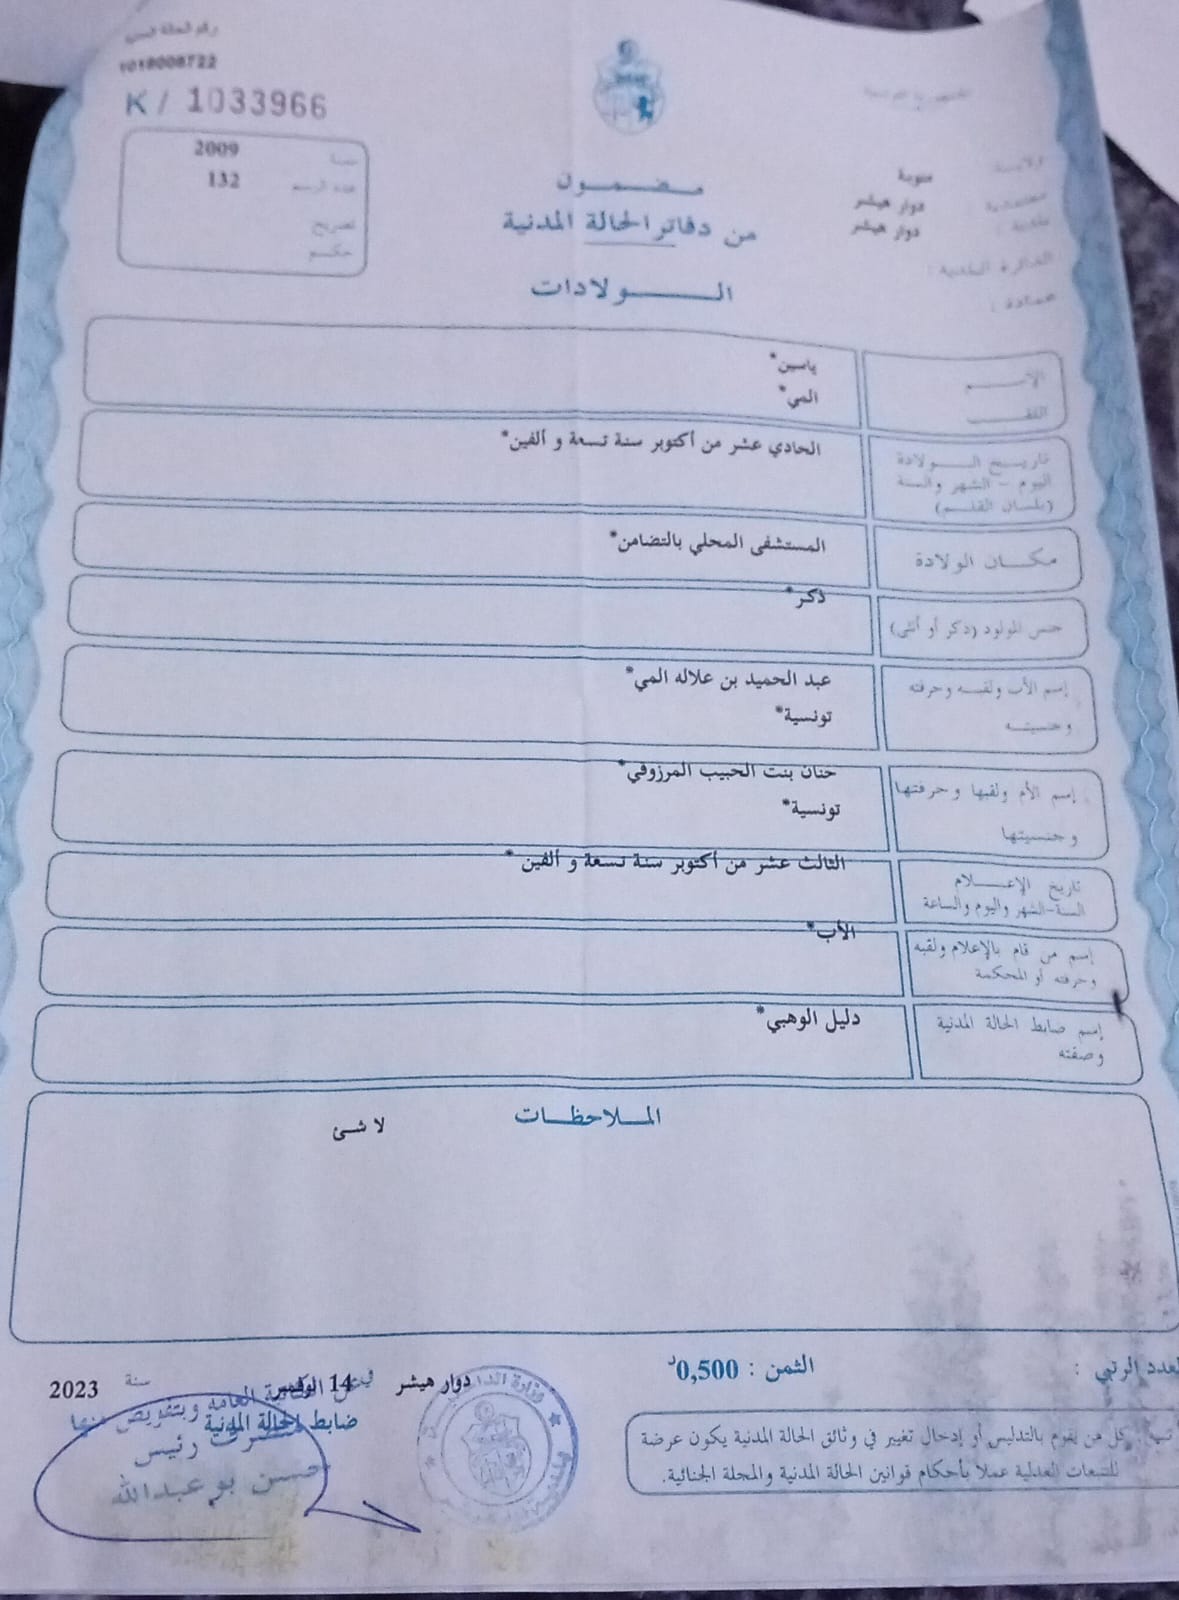 رقم الحالة المدنية
1018008722
K / 1033966
الجمهورية التونسية
ولاية : منوبة
معتمدية : دوار هيشر
بلدية : دوار هيشر
الدائرة البلدية :
عمادة :
سنة 2009
عدد الرسم 132
تصريح
حكم
مضمون
من دفاتر الحالة المدنية
الولادات
الاسم ياسين*
اللقب المي*
تاريخ الولادة الحادي عشر من أكتوبر سنة تسعة و ألفين*
اليوم - الشهر والسنة
(بلسان القلم)
مكان الولادة المستشفى المحلي بالتضامن*
جنس المولود (ذكر أو أنثى) ذكر*
إسم الأب ولقبه وحرفته عبد الحميد بن علاله المي*
وجنسيته تونسية*
إسم الأم ولقبها وحرفتها حنان بنت الحبيب المرزوقي*
وجنسيتها تونسية*
تاريخ الإعلام الثالث عشر من أكتوبر سنة تسعة و ألفين *
السنة-الشهر واليوم والساعة
إسم من قام بالإعلام ولقبه الأب*
وحرفته أو المحكمة
إسم ضابط الحالة المدنية دليل الوهبي*
وصفته
الملاحظات
لا شئ
العدد الرتبي :
الثمن : 0,500د
دوار هيشر في 14 نوفمبر سنة 2023
ضابط الحالة المدنية
عن الكتابة العامة وبتفويض منها
رئيس
حسن بو عبدالله
وزارة الداخلية
كل من يقوم بالتدليس أو إدخال تغيير في وثائق الحالة المدنية يكون عرضة
للتتبعات العدلية عملا بأحكام قوانين الحالة المدنية والمجلة الجنائية.